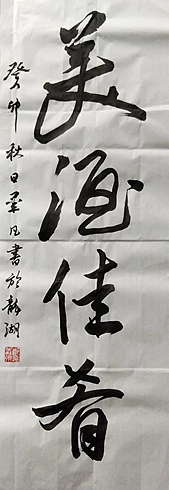 美酒佳肴
癸卯秋日華凡書於龍湖